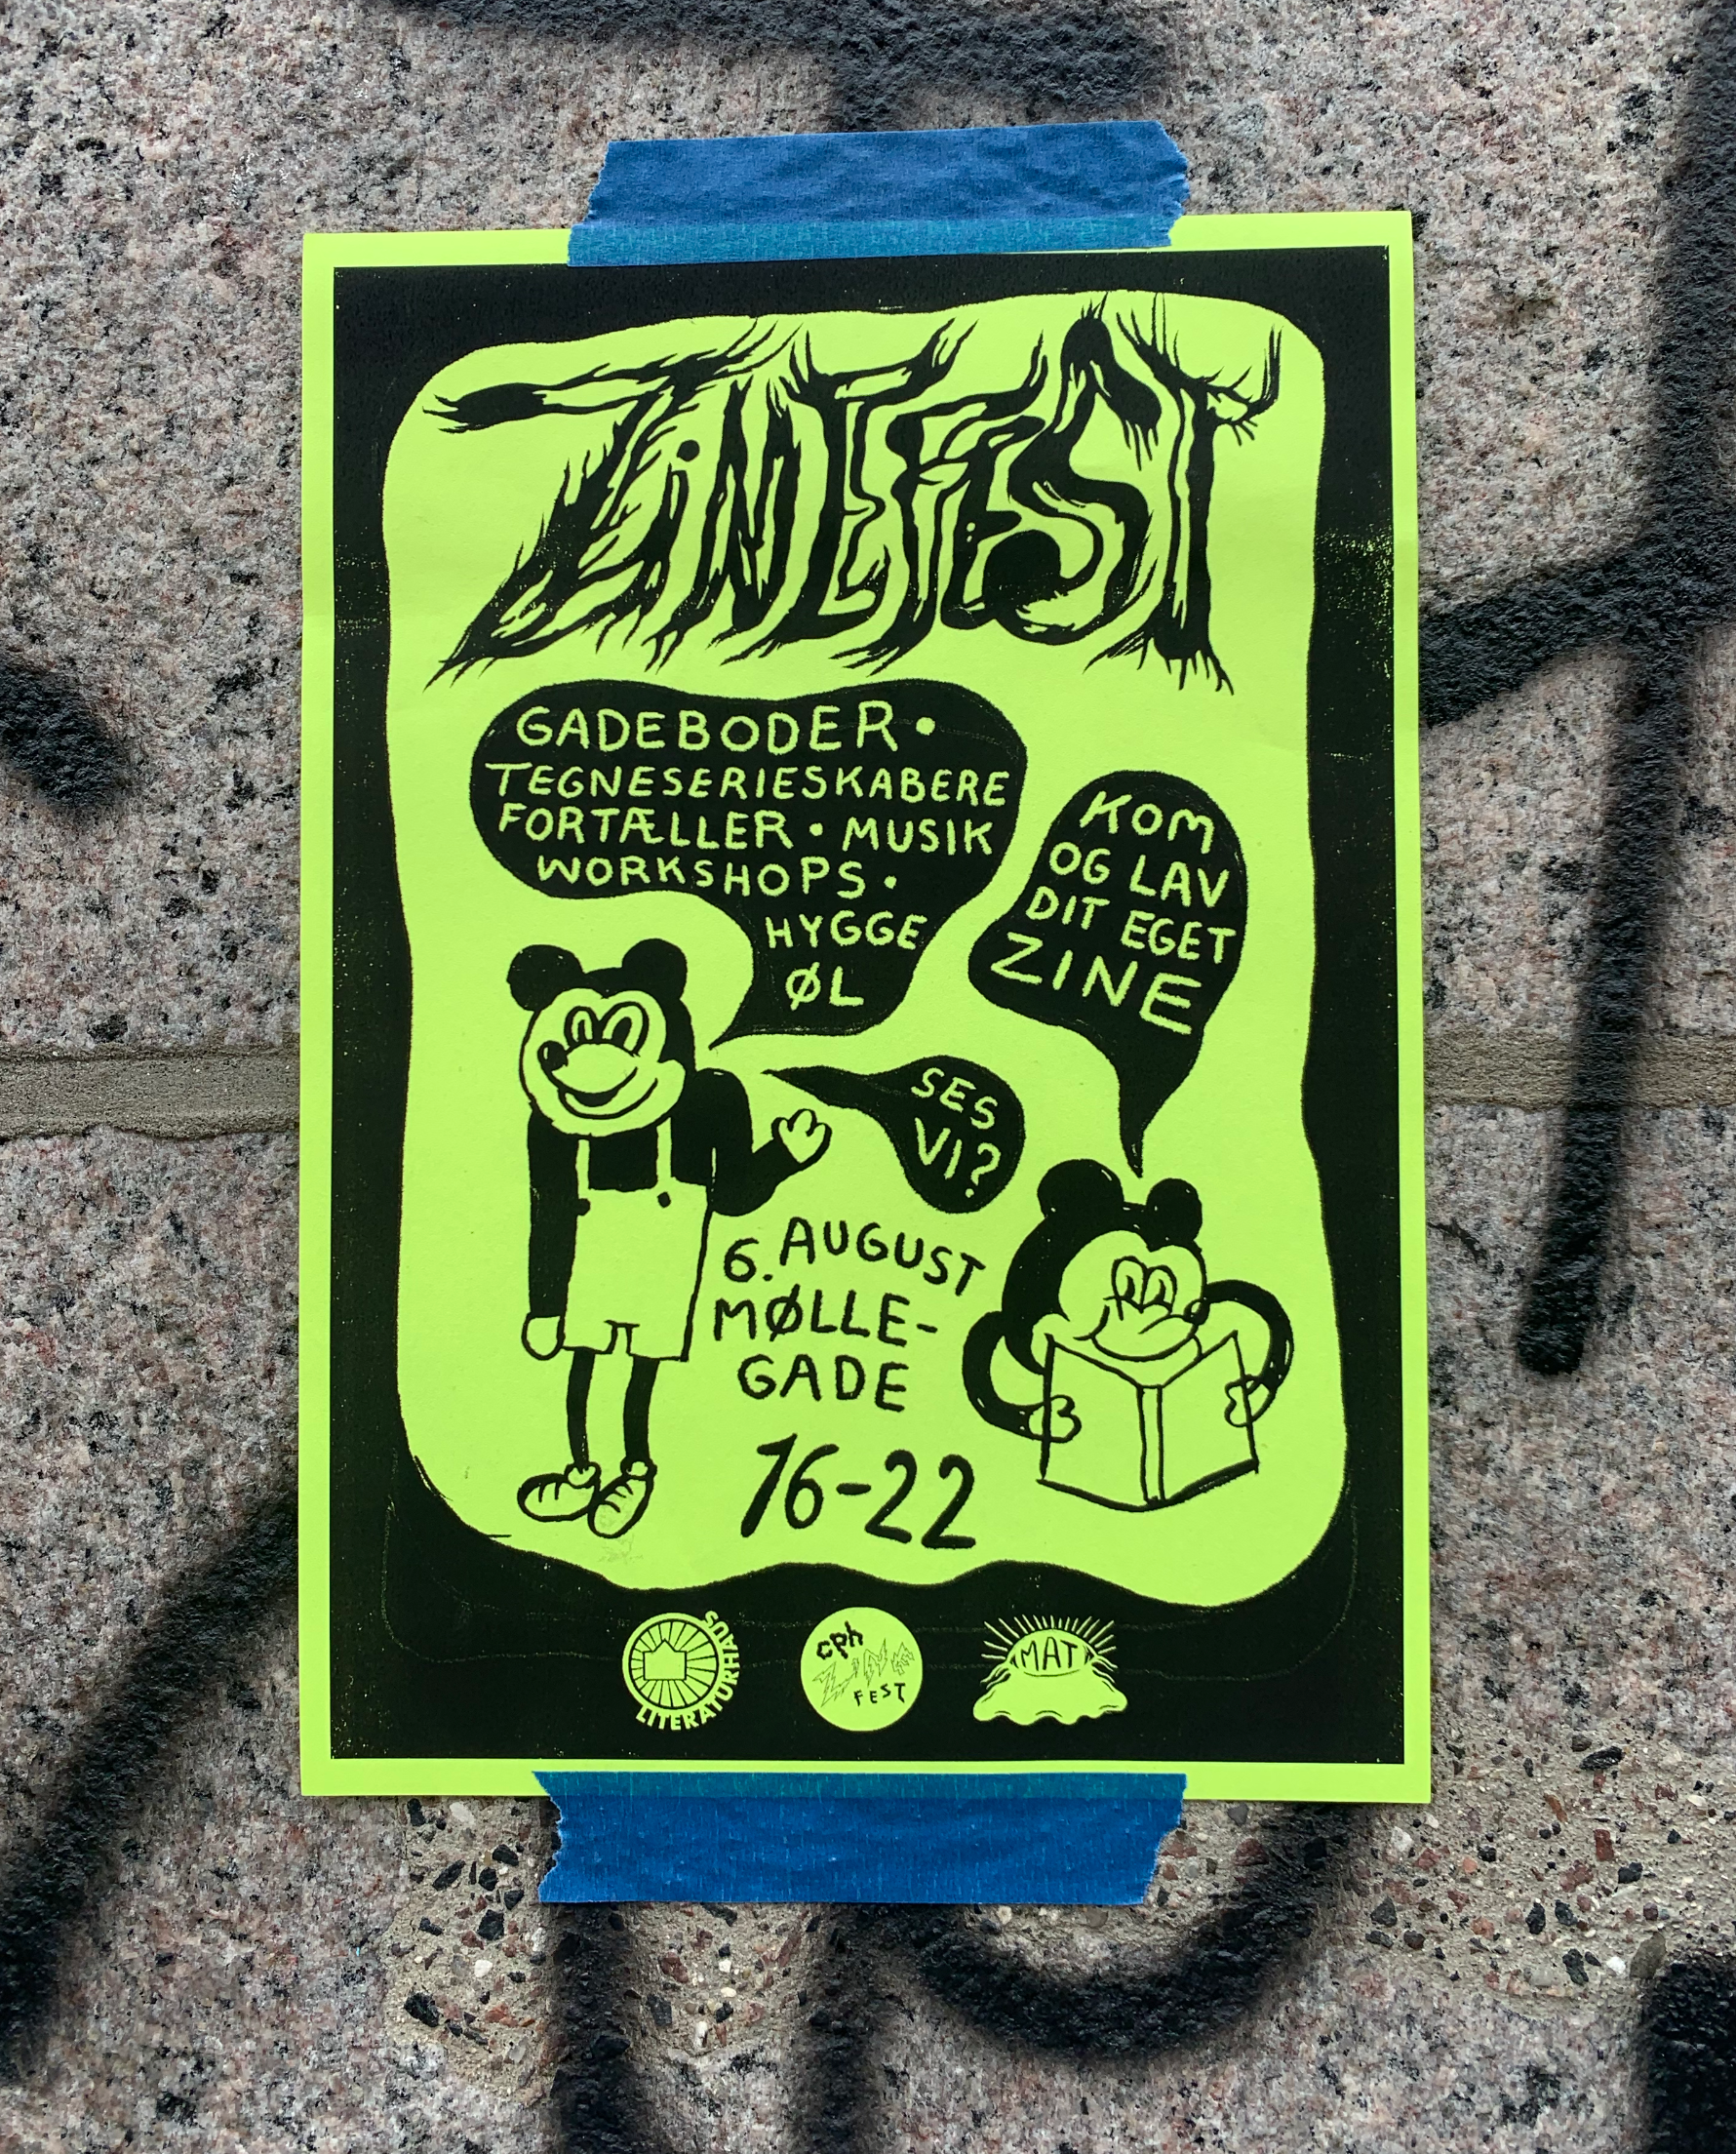 ZINEFEST
GADEBODER •
TEGNESERIESKABERE
FORTÆLLER • MUSIK
WORKSHOPS •
HYGGE
ØL
KOM
OG LAV
DIT EGET
ZINE
SES
VI?
6. AUGUST
MØLLE-
GADE
16-22
LITERATURHAUS
cph
ZINE
FEST
MAT